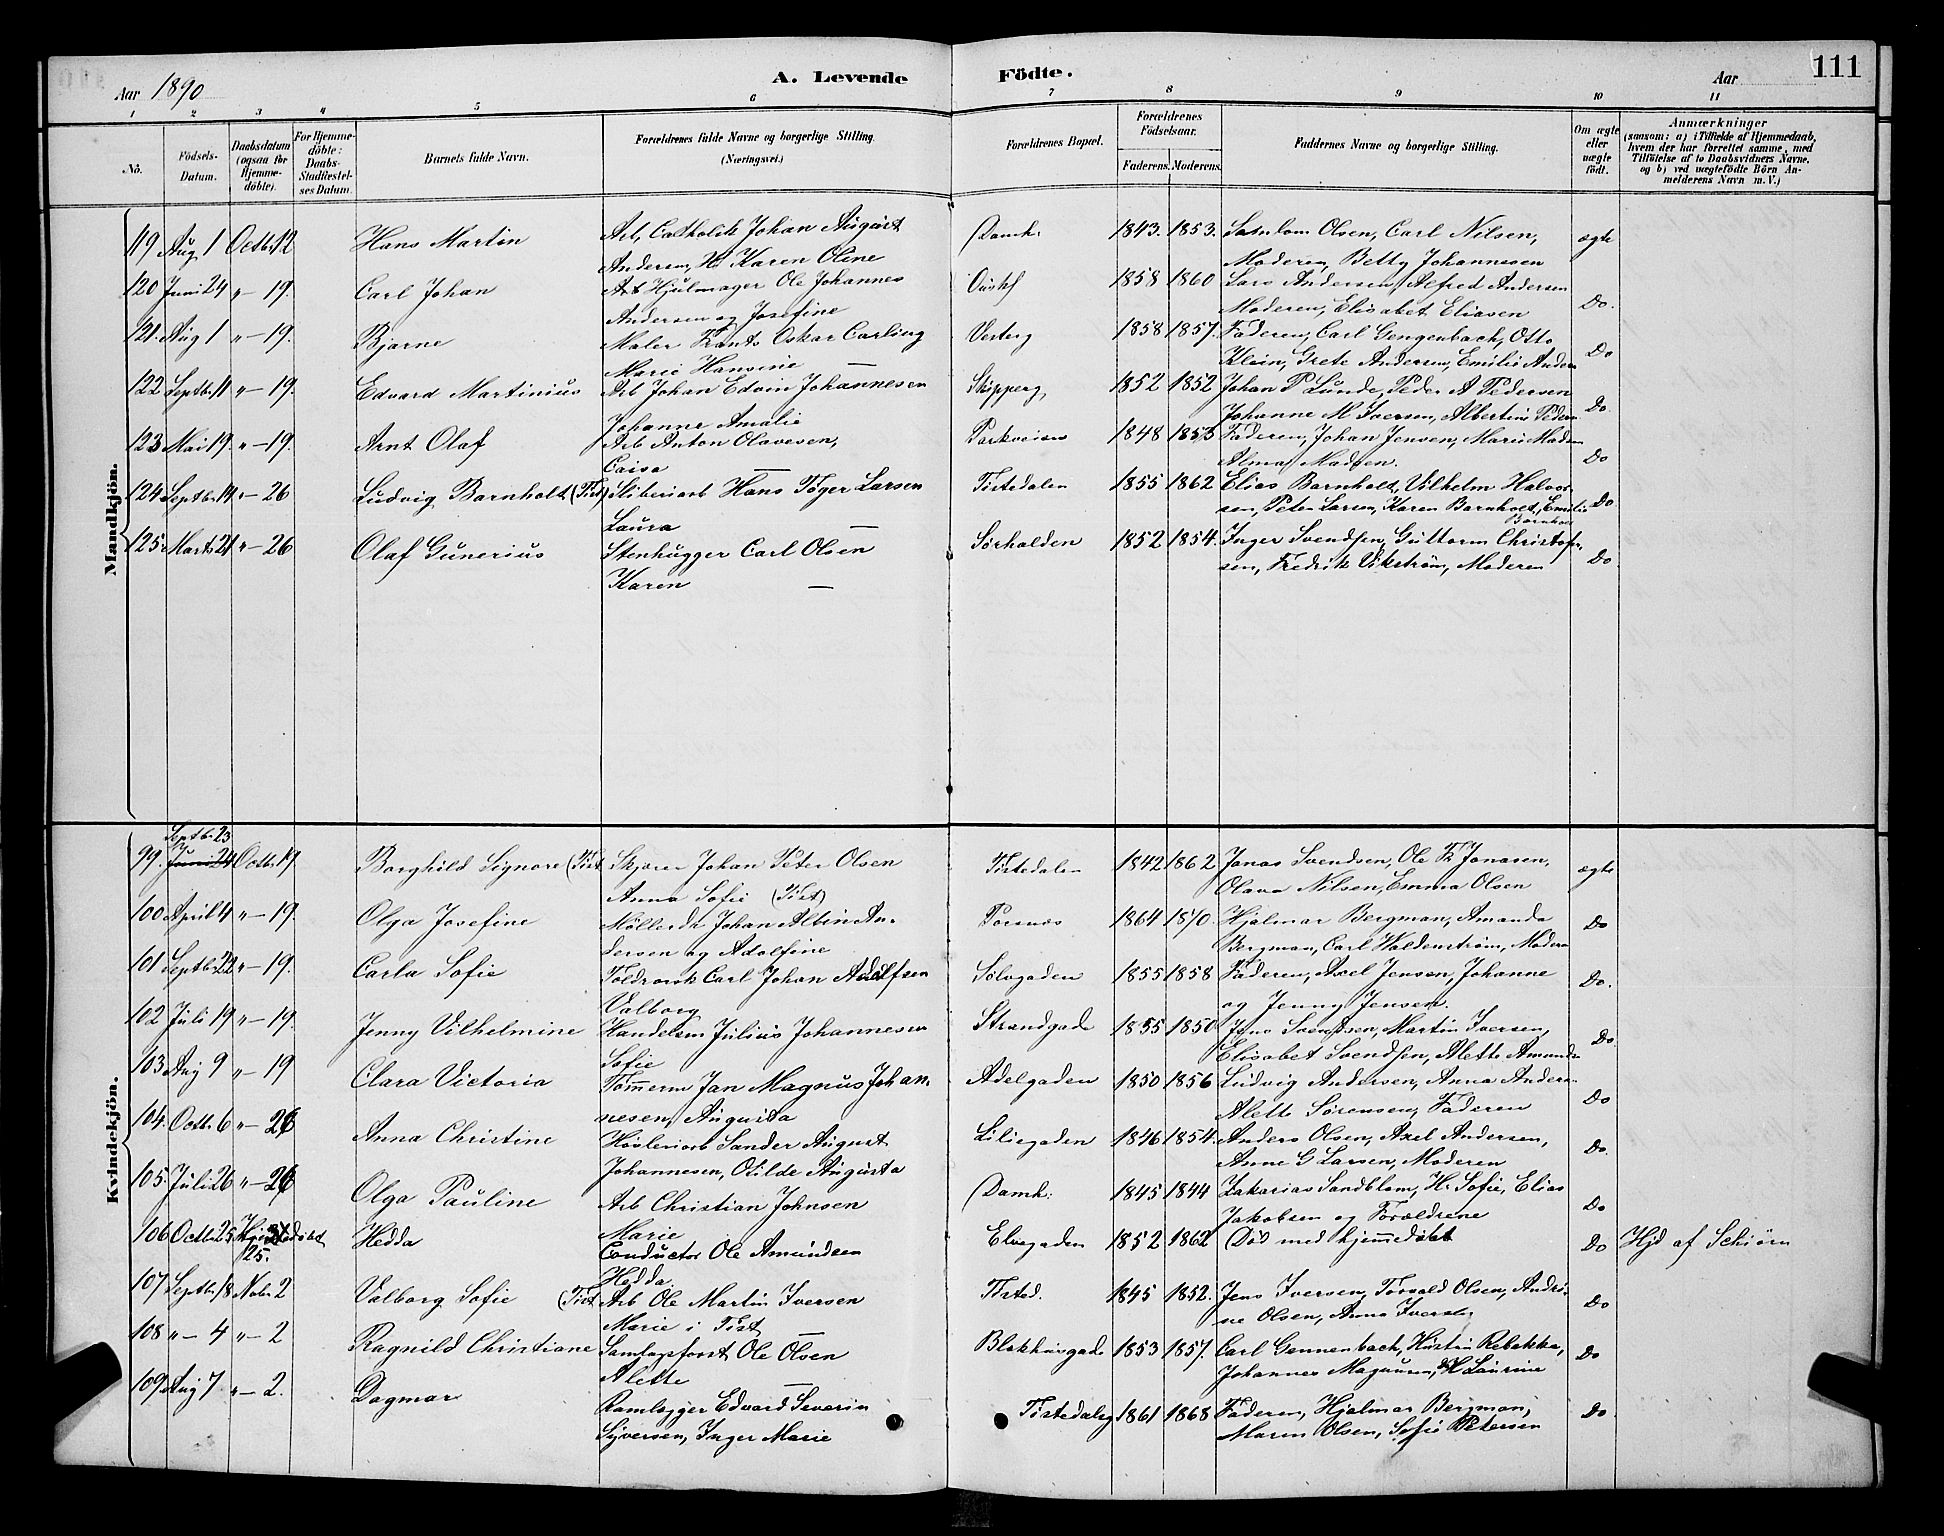 Aar 1890 A. Levende Födte. Aar 111
1 2 3 4 5 6 7 8 9 10 11
No. Födsels-Datum. Daabsdatum (ogsaa for Hjemme-döbte). For Hjemme-döbte: Daabs-Stadfæstel-ses Datum. Barnets fulde Navn. Forældrenes fulde Navne og borgerlige Stilling. (Næringsvei.) Forældrenes Bopæl. Forældrenes Födselsaar. Faderens. Moderens. Faddernes Navne og borgerlige Stilling. Om ægte eller uægte födt. Anmærkninger (saasom: a) i Tilfælde af Hjemmedaab, hvem der har forrettet samme, med Tilföielse af to Daabsvidners Navne, og b) ved uægtefödte Börn An-melderens Navn m. V.)
Mandkjön.
119 Aug 1 Octb. 12 Hans Martin Arb, Catholik Johan August Damh. 1843. 1853. Olsen, Carl Nilsen, ægte
Andersen, H Karen Oline Moderen, Betty Johannesen
120 Juni 24 „ – 19. Carl Johan Arb Hjulmager Ole Johannes 1858 1860 Lars Andersen, Alfred Andersen Do.
Andersen og Josefine Moderen, Elisabet Eliasen
121. Aug 1 „ – 19. Bjarne Maler Frants Oskar Carlberg Vesterg 1858 1857. Faderen, Carl Gengenbach, Otto Do
Marie Hansine — Klein, Grete Andersen, Emilie Anders
122 Septb. 11 „ – 19. Edvard Martinius Arb Johan Edvin Johannesen Skipperg, 1852 1852 Johan P Lunde, Peder A Pedersen Do.
Johanne Amalie Johanne M Iversen, Albertine Peders
123 Mai 19. „ – 19. Arnt Olaf Arb Anton Olavesen, Parkveien 1848 1853 Faderen, Johan Jensen, Marie Mads Do
Caisa — Alma Madsen.
124 Septbr. 14 „ – 26 Ludvig Barnholt (Tist) Sliberiarb Hans Töger Larsen Tistedalen 1855 1862 Elias Barnholt, Vilhelm Halvor Do
Laura — sen, Peter Larsen, Karen Barnholt, Emilie
Barnholt
125. Marts 21 „ – 26 Olaf Gunerius Stenhugger Carl Olsen Sörhalden 1852 1854. Inger Svendsen, Guttorm Christof Do
Karen — sen, Fredrik Vikström, Moderen
Kvindekjön.
Septb. 23
99. Juni 24 Octb. 19 Borghild Signore (Tist Skjærer Johan Peter Olsen Tistedalen 1842 1862 Jonas Svendsen, Ole Fr Jonasen, ægte
Anna Sofie (Tist) Olava Nilsen, Emma Olsen
100 April 4 „ – 19. Olga Josefine Möllerdr Johan Albin An- Torsnæs 1864 1870. Hjalmar Bergman, Amanda Do
dersen og Adolfine Bergman, Carl Waldenström, Modern
101 Septb. 22 „ – 19. Carla Sofie Toldrorsk Carl Johan Adolfsen Sølvgaden 1855 1858 Faderen, Axel Jensen, Johanne Do.
Valborg og Jenny Jensen.
102 Juli 19 „ – 19. Jenny Vilhelmine Handelsm Julius Johannesen Strandgade 1855 1850 Jens Svendsen, Martin Iversen, Do.
Sofie Elisabet Svendsen, Alette Amunds
103 Aug 9 „ – 19 Clara Victoria Tømmerm Jan Magnus Johan- Adelgaden 1850 1856 Ludvig Andersen, Anna Anders Do
nesen, Augusta Alette Sørensen, Faderen
104. Octb. 6 „ – 26 Anna Christine Høvleriarb Sander August Liliegaden 1846 1854. Anders Olsen, Axel Andersen, Do.
Johannesen, Otilde Augusta Anne G Larsen, Moderen
105. Juli 26 „ – 26 Olga Pauline Arb Christian Johnsen Damh. 1845 1844 Zakarias Sandblom, H. Sofie, Elias Do
Marie Jakobsen og Forældrene
106 Octb. 25 Hjemmedöbt 25. Hedda Conductør Ole Amundsen Elvegaden 1852 1862 Död med hjemmedöbt Do Hjd af Schiørn
Hedda
107 Septb. 18 Novb. 2 Valborg Sofie (Tist Arb Ole Martin Iversen Tisted. 1845 1852. Jens Iversen, Torvald Olsen, Andri- Do
Marie i Tist ne Olsen, Anna Iversen
108 „ – 4 „ – 2 Ragnild Christiane Samlagsforst Ole Olsen Blokhusgade 1853 1857. Carl Gennenbach, Hustru Rebekka, Do
Alette — Johannes Magnusen, H Laurine
109 Aug 7 „ – 2. Dagmar Ramlægger Edvard Severin Tistedalsg 1861 1868 Faderen, Hjalmar Bergman, Do
Syversen, Inger Marie Maren Olsen, Sofie Petersen